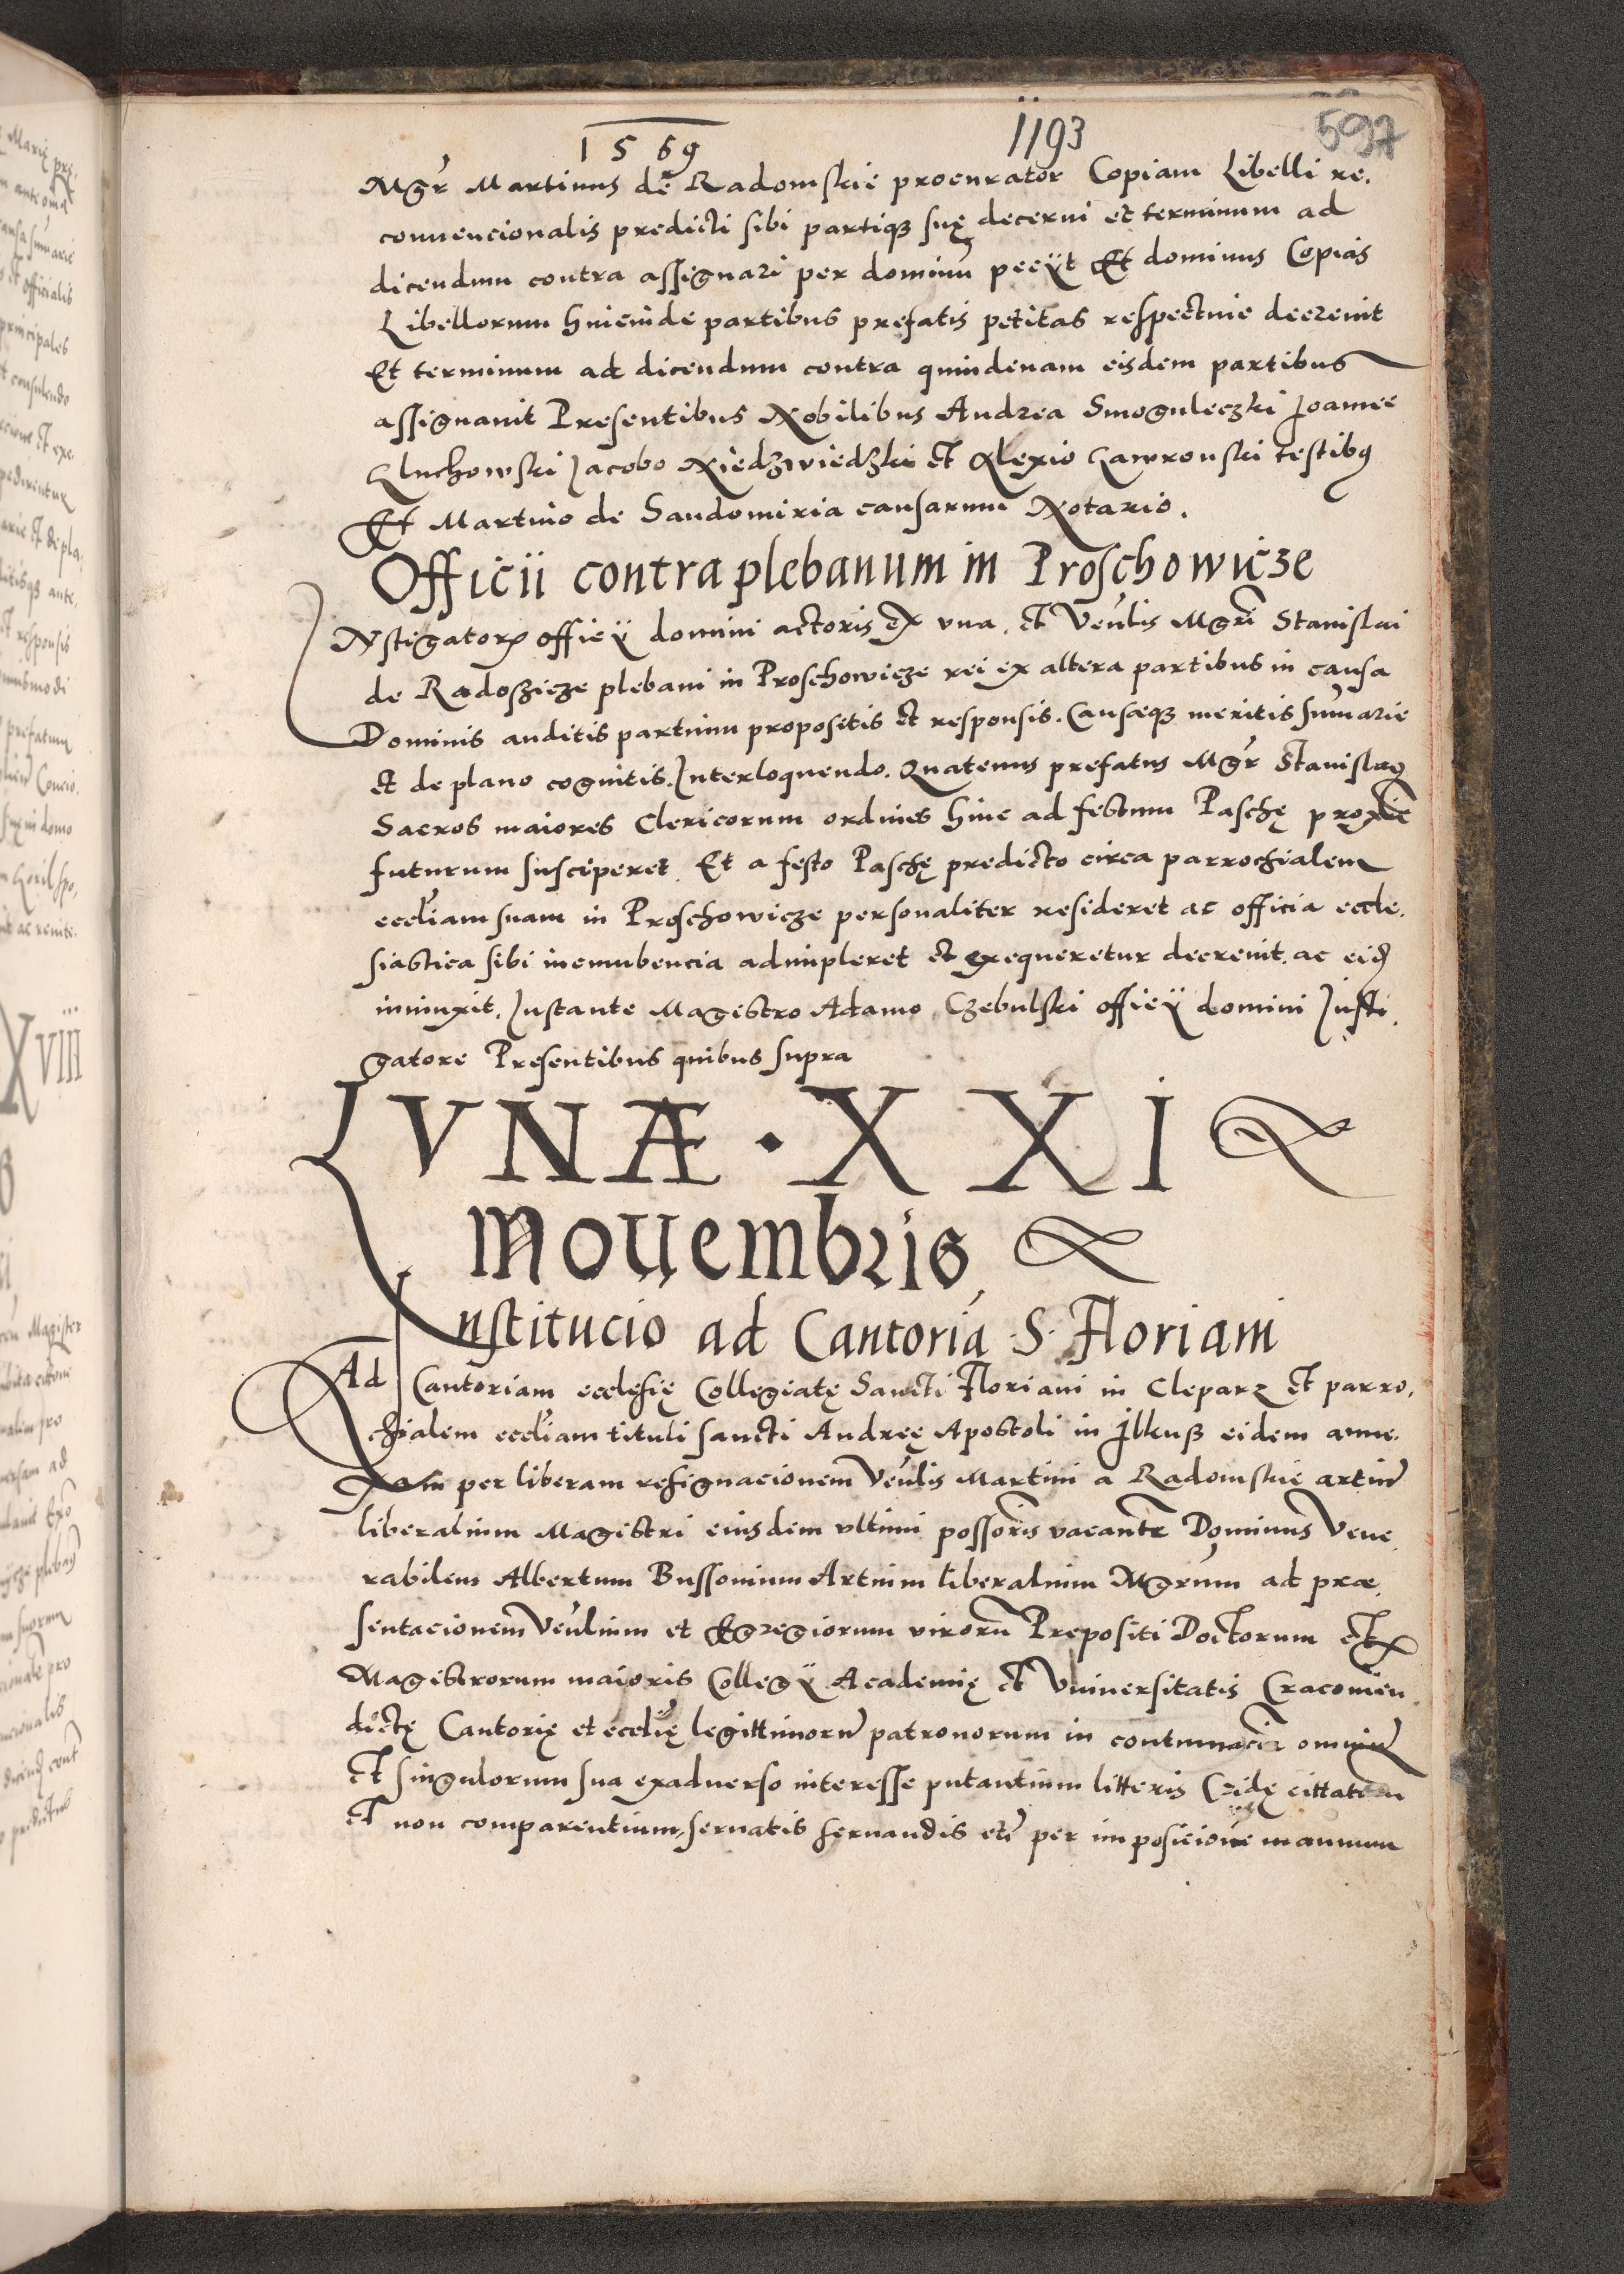 1569 1193 597
Mgr̃ Martinus de Radomskie procurator Copiam Libelli re,
conuencionalis predicti sibi partiq3 suę decerni et terminum ad
dicendum contra assignari per dominũ peciit Et dominus Copias
Libellorum hincinde partibus prefatis petitas respectiue decreuit
Et terminum ad dicendum contra quindenam eisdem partibus
assignauit Presentibus Nobilibus Andrea Smoguleczki Joanne
Gluchowski Jacobo Niedzwiedzki et Alexio Gawronski testibꝯ
Et Martino de Sandomiria causarum Notario.
Officii contra plebanum in Proschowicze
INstigatorꝭ officii domini actoris ex vna, et Veñlis Mgr̃i Stanislai
de Radoszicze plebani in Proschowicze rei ex altera partibus in causa
Dominis auditis partium propositis et responsis. Causæq3 meritis sum̃arie
et de plano cognitis. Interloquendo. Quatenus prefatus Mgr̃ Stanislaꝯ
Sacros maiores Clericorum ordines hinc ad festum Paschę proxiẽ
futurum susciperet. Et a festo Paschę predicto circa parrochialem
eccliam̃ suam in Proschowicze personaliter resideret ac officia eccle,
siastica sibi incumbencia adimpleret et exequeretur decreuit, ac eid̃
iniunxit, Instante Magistro Adamo Czebulski officii domini Insti,
gatore Presentibus quibus supra
LVNÆ · XXI
Nouembris
Institucio ad Cantoriã S. Floriani
Ad Cantoriam ecclesię Collegiatę Sancti Floriani in Cleparz et parro,
chialem eccliam̃ tituli sancti Andreę Apostoli in Ilkusz eidem anne,
xam per liberam resignacionem Veñlis Martini a Radomskie artiũ
liberalium Magistri eiusdem vltimi possoris̃ vacanteᷓ Dominus Vene,
rabilem Albertum Bussonium Artium liberalium Mgrum̃ ad præ,
sentacionem Veñlium et Egregiorum virorũ Prepositi Doctorum et
Magistrorum maioris Collegii Academię et Vniuersitatis Cracouien̄
dictę Cantorię et ecclię̃ legittimorũ patronorum in contumaciã omniũ
et singulorum sua exaduerso interesse putantium litteris Cridę cittatorum
et non comparentium, seruatis seruandis etc̃ per imposicionẽ manuum